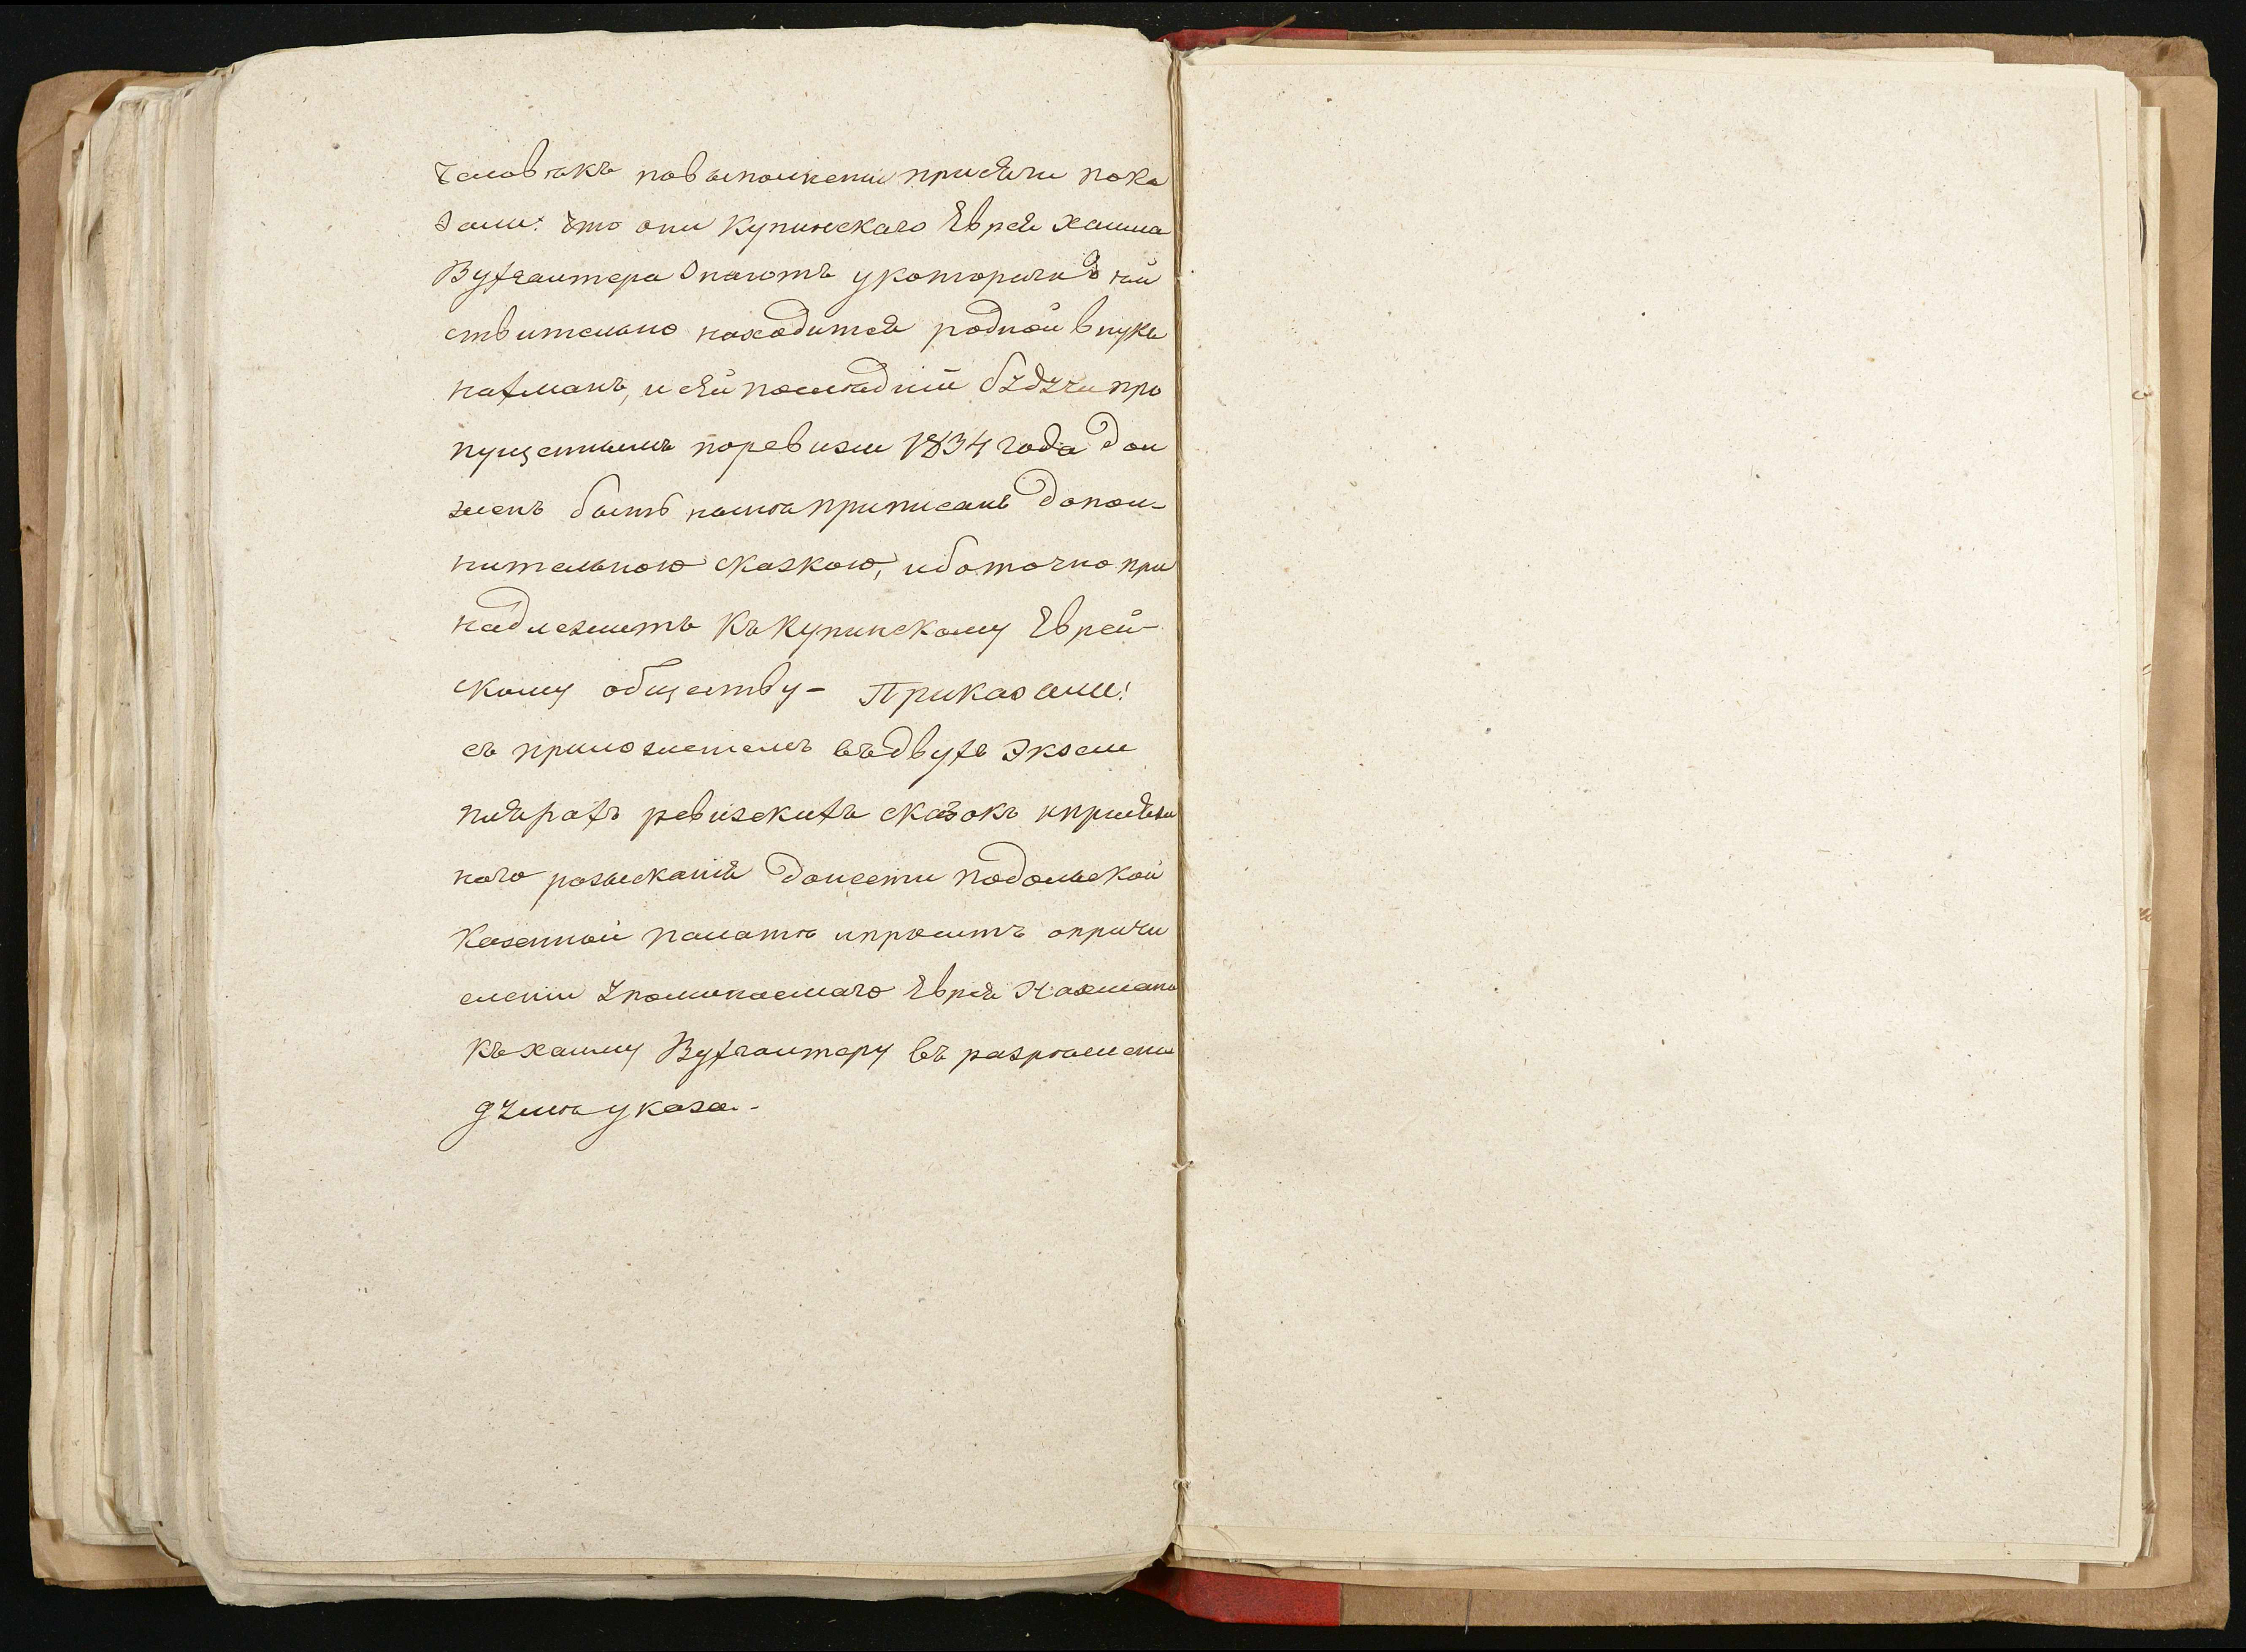 человѣкъ повыполнении присяги пока
зали: что они Купинскаго Еврея Хаима
Вухгалтера знаютъ укотораго дѣй
ствительно находится родной внукъ
нахманъ, и сей послѣдній будучи про
пущеннымъ поревизіи 1834 года дол
женъ быть нынѣ приписанъ допол-
нительною сказкою, ибо точно при
надлежитъ къ Купинскому Еврей-
скому обществу - Приказали:
съ приложеніемъ въ двухъ Экзем
плярахъ ревизскихъ сказокъ и присяж
наго розысканія донести подольской
Казенной палатѣ и просить о причи
сленіи упоминаемаго Еврея Нахмана
къ хаиму Вухгалтеру въ разрѣшеніи
указа.-